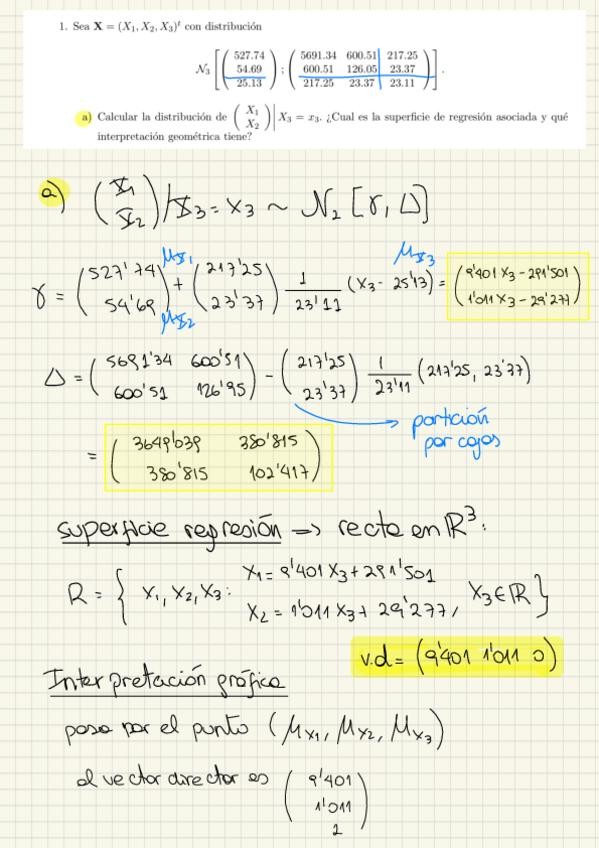 1. Sea X = (X₁, X₂, X₃)ᵗ con distribución
N₃ [ ( 527.74 54.69 25.13 ) ; ( 5691.34 600.51 217.25
600.51 126.05 23.37
217.25 23.37 23.11 ) ] .
a) Calcular la distribución de ( X₁ X₂ ) | X₃ = x₃. ¿Cual es la superficie de regresión asociada y qué
interpretación geométrica tiene?
a) ( X₁ X₂ ) / X₃ = x₃ ~ N₂ [γ, Δ]
μX₁ μX₃
γ = ( 527'74 54'69 ) + ( 217'25 23'37 ) 1/23'11 (x₃ - 25'13) = ( 9'401 x₃ - 291'501 1'011 x₃ - 29'277 )
μX₂
Δ = ( 5691'34 600'51 600'51 126'95 ) - ( 217'25 23'37 ) 1/23'11 (217'25, 23'37)
partición
por cajas
= ( 3649'039 380'815 380'815 102'417 )
superficie regresión => recta en ℝ³:
R = { x₁, x₂, x₃ : x₁ = 9'401 x₃ + 291'501
x₂ = 1'011 x₃ + 29'277, x₃ ∈ ℝ }
v.d = (9'401 1'011 0)
Interpretación gráfica
pasa por el punto (μX₁, μX₂, μX₃)
el vector director es ( 9'401 1'011 1 )